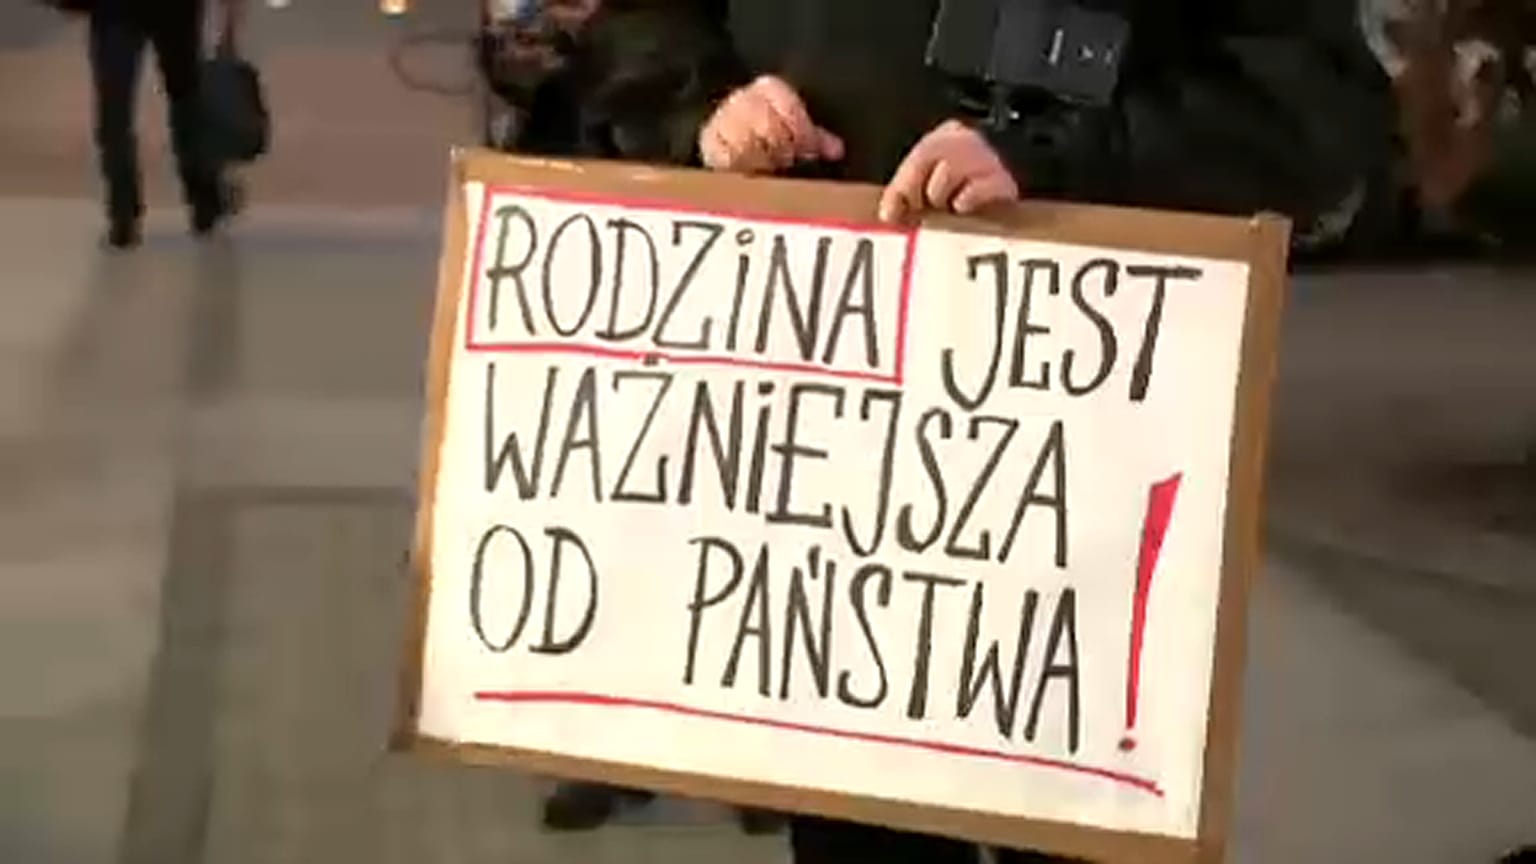 RODZiNA JEST
WAŻNiEJSZA
OD PAŃSTWA!